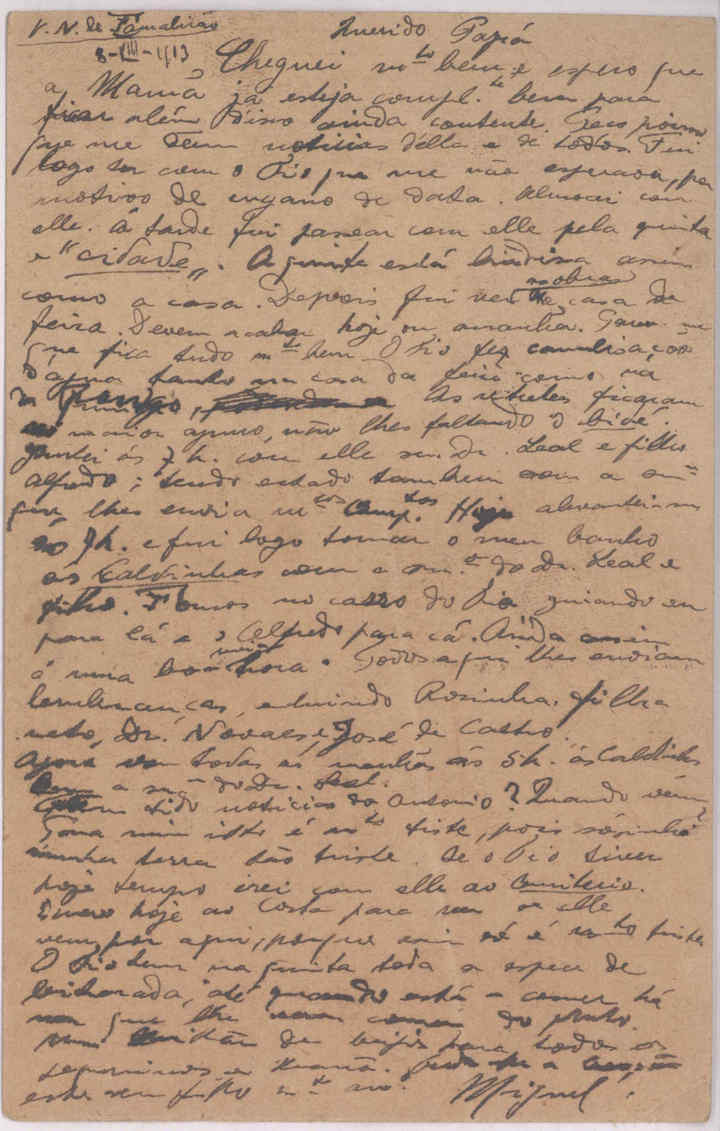 V. N. de Famalicão
8-VIII-1913
Querido Papá
Cheguei mto bem e espero que
a Mamã já esteja compl.te bem para
ficar além disso ainda contente. Peço
que me dêem noticias d'ella e de todos. Fui
logo ter com o Pio que me não esperava, por
motivos de engano de data. Almocei com
elle. Á tarde fui passear com elle pela quinta
e "cidade". A quinta está lindissima assim
como a casa. Depois fui ver as obras casa da
feira. Devem acabar hoje ou amanhã.
que fica tudo mto bem. O Pio fez canalisação
d'agua tanto na casa da feira como na
As retretes ficaram
maior apuro, não lhes faltando o bidé.
Jantei ás 7 h. com elle sr. Dr. Leal e filho
Alfredo; tendo estado tambem com a sra
que lhes envia mtos cumptos. Hoje alevantei-me
ás 7h. e fui logo tomar o meu banho
ás Caldinhas com a sra do Dr. Leal e
filho. Fomos no carro do Pio guiando eu
para lá e o Alfredo para cá. Ainda assim
é uma boa meia hora. Todos aqui lhes enviam
lembranças, incluindo Rosinha, filha
neto, Dr. Novaes, e José de Castro.
Agora vou todas as manhãs ás 5h. ás Caldinhas
com a sra do Dr. Leal.
tido noticias do Antonio? Quando vem?
Para mim isto é mto triste, pois sósinho
n'uma terra tão triste. Se o Pio tiver
hoje tempo irei com elle ao Cemiterio.
Escrevo hoje ao Costa para ver se elle
vem por aqui, porque assim só é muito triste
O Pio tem na quinta toda a especie de
bicharada, até quando está a comer há
que lhe do prato.
de beijos para todos os
e Mamã.
este seu filho mto amo.
Miguel.